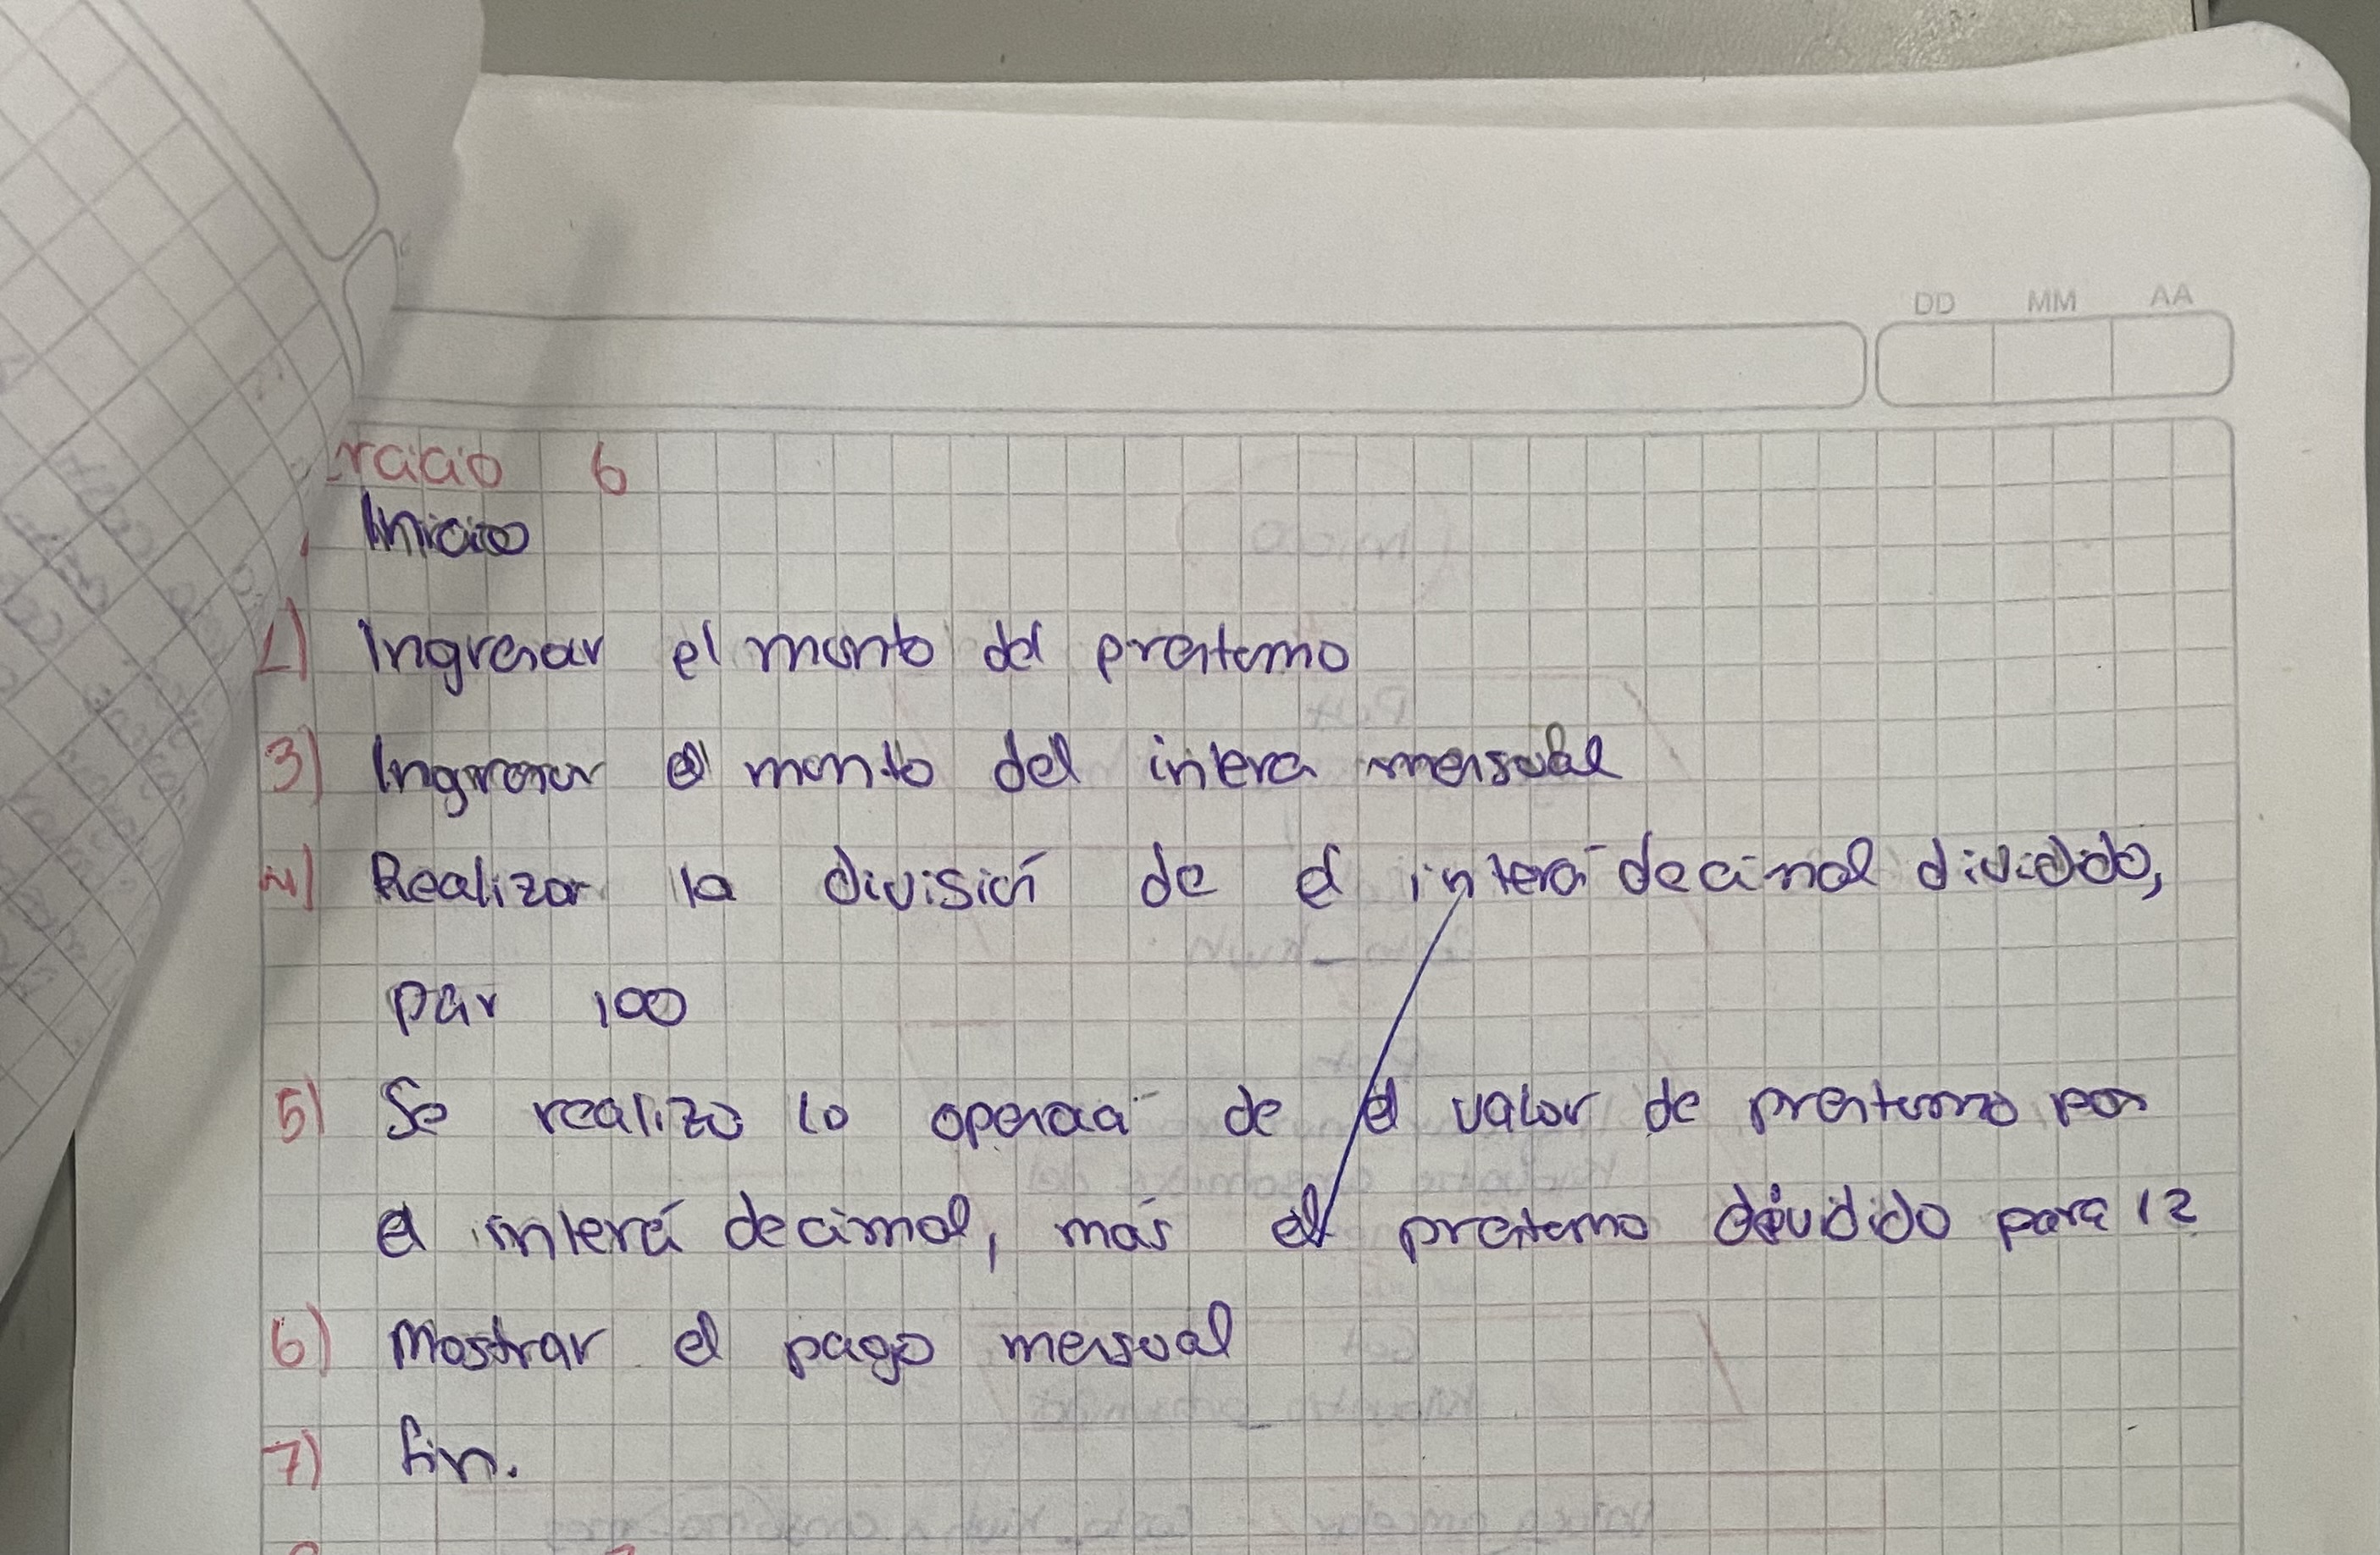 DD MM AA
ercicio 6
Inicio
2) Ingresar el monto del prestamo
3) Ingresar el monto del interes mensual
4) Realizar la división de el interés decimal dividido,
par 100
5) Se realiza la operació de el valor de prestamo por
el interés decimal, más el prestamo dividido para 12
6) Mostrar el pago mensual
7) fin.